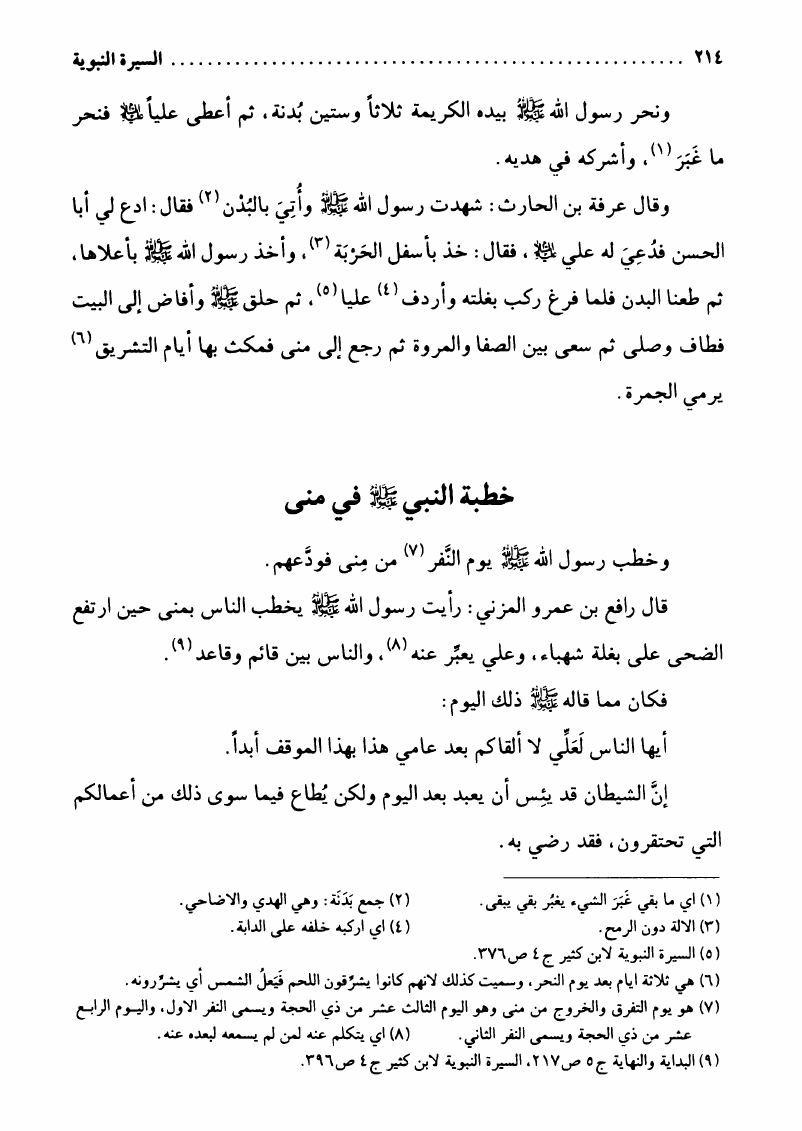 ٢١٤ ........................................................ السيرة النبوية
ونحر رسول الله ﷺ بيده الكريمة ثلاثاً وستين بُدنة، ثم أعطى علياً عليه السلام فنحر
ما غَبَرَ(١)، وأشركه في هديه.
وقال عرفة بن الحارث: شهدت رسول الله ﷺ وأُتِيَ بالبُدْن(٢) فقال: ادع لي أبا
الحسن فدُعِيَ له علي عليه السلام، فقال: خذ بأسفل الحَرْبَة(٣)، وأخذ رسول الله ﷺ بأعلاها،
ثم طعنا البدن فلما فرغ ركب بغلته وأردف(٤) عليا(٥)، ثم حلق ﷺ وأفاض إلى البيت
فطاف وصلى ثم سعى بين الصفا والمروة ثم رجع إلى منى فمكث بها أيام التشريق(٦)
يرمي الجمرة.
خطبة النبي ﷺ في منى
وخطب رسول الله ﷺ يوم النَّفر(٧) من مِنى فودَّعهم.
قال رافع بن عمرو المزني: رأيت رسول الله ﷺ يخطب الناس بمنى حين ارتفع
الضحى على بغلة شهباء، وعلي يعبِّر عنه(٨)، والناس بين قائم وقاعد(٩).
فكان مما قاله ﷺ ذلك اليوم:
أيها الناس لَعَلِّي لا ألقاكم بعد عامي هذا بهذا الموقف أبداً.
إنَّ الشيطان قد يئِس أن يعبد بعد اليوم ولكن يُطاع فيما سوى ذلك من أعمالكم
التي تحتقرون، فقد رضي به.
(١) اي ما بقي غَبَرَ الشيء يغبُر بقي يبقى. (٢) جمع بَدَنَة: وهي الهدي والاضاحي.
(٣) الالة دون الرمح. (٤) اي اركبه خلفه على الدابة.
(٥) السيرة النبوية لابن كثير ج٤ ص٣٧٦.
(٦) هي ثلاثة ايام بعد يوم النحر، وسميت كذلك لانهم كانوا يشرِّقون اللحم فَيَعلُ الشمس أي يشرِّرونه.
(٧) هو يوم التفرق والخروج من منى وهو اليوم الثالث عشر من ذي الحجة ويسمى النفر الاول، واليوم الرابع
عشر من ذي الحجة ويسمى النفر الثاني. (٨) اي يتكلم عنه لمن لم يسمعه لبعده عنه.
(٩) البداية والنهاية ج٥ ص٢١٧، السيرة النبوية لابن كثير ج٤ ص٣٩٦.